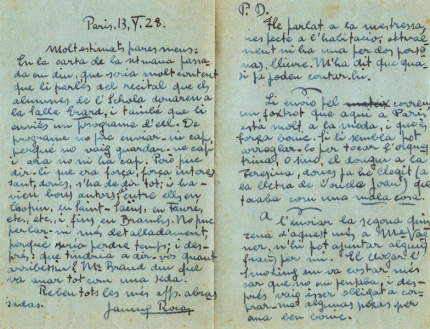 Paris, 13, V. 28.
Molt estimats pares meus:
En la carta de la setmana passa-
da em diu, que seria molt content
que li parlés del recital que els
alumnes de l'Schola donaren a
la Salle Erard, i també que li
enviés un programa d'ell. De
programa no puc enviar-ni cap,
perquè no vaig guardar-ne cap
i ara no ni ha cap. Però puc
dir-li que era força, força interes-
sant, doncs, s'ha de dir tot; hi ha-
vien bons autors, entre ells, en
Saint-Saëns, en Fauré,
etc., etc., i fins en Brahms. No puc
parlar-ni més detalladament,
perquè seria perdre temps; i des-
prés: que tindria a dir-vos quant
arribi Mr. Braud diu que
va anar tot com una seda.
Rebeu tots les més aff. abras
sadas.
Jaume
P. D.
He parlat a la mestressa
respecte a l'habitació; actual-
ment ni ha una per dos perso-
nas, lliure. M'ha dit que qua-
si pe podem contar-hi.
Li envio pel mateix correu
un foxtrot que aquí a Paris
està molt a la moda, i que és
força bonic. Si li sembla pot
arreglar-lo per tocar l'orques-
trina, o sinó, el dongui a la
Teresina, doncs ja he llegit (a
la lletra de l'onda Joan) que
tocaba com una mala cosa.
A l'enviar la segona quin
zena d'aquest mes a Mr. Vag
ner, m'hi pot ajuntar alguns
franchs per mi. El llogar l'
smoking em va costar més
car que no em pensaba, i des-
prés vaig ésser obligat a com-
prar-me algunas pessas per
una ben